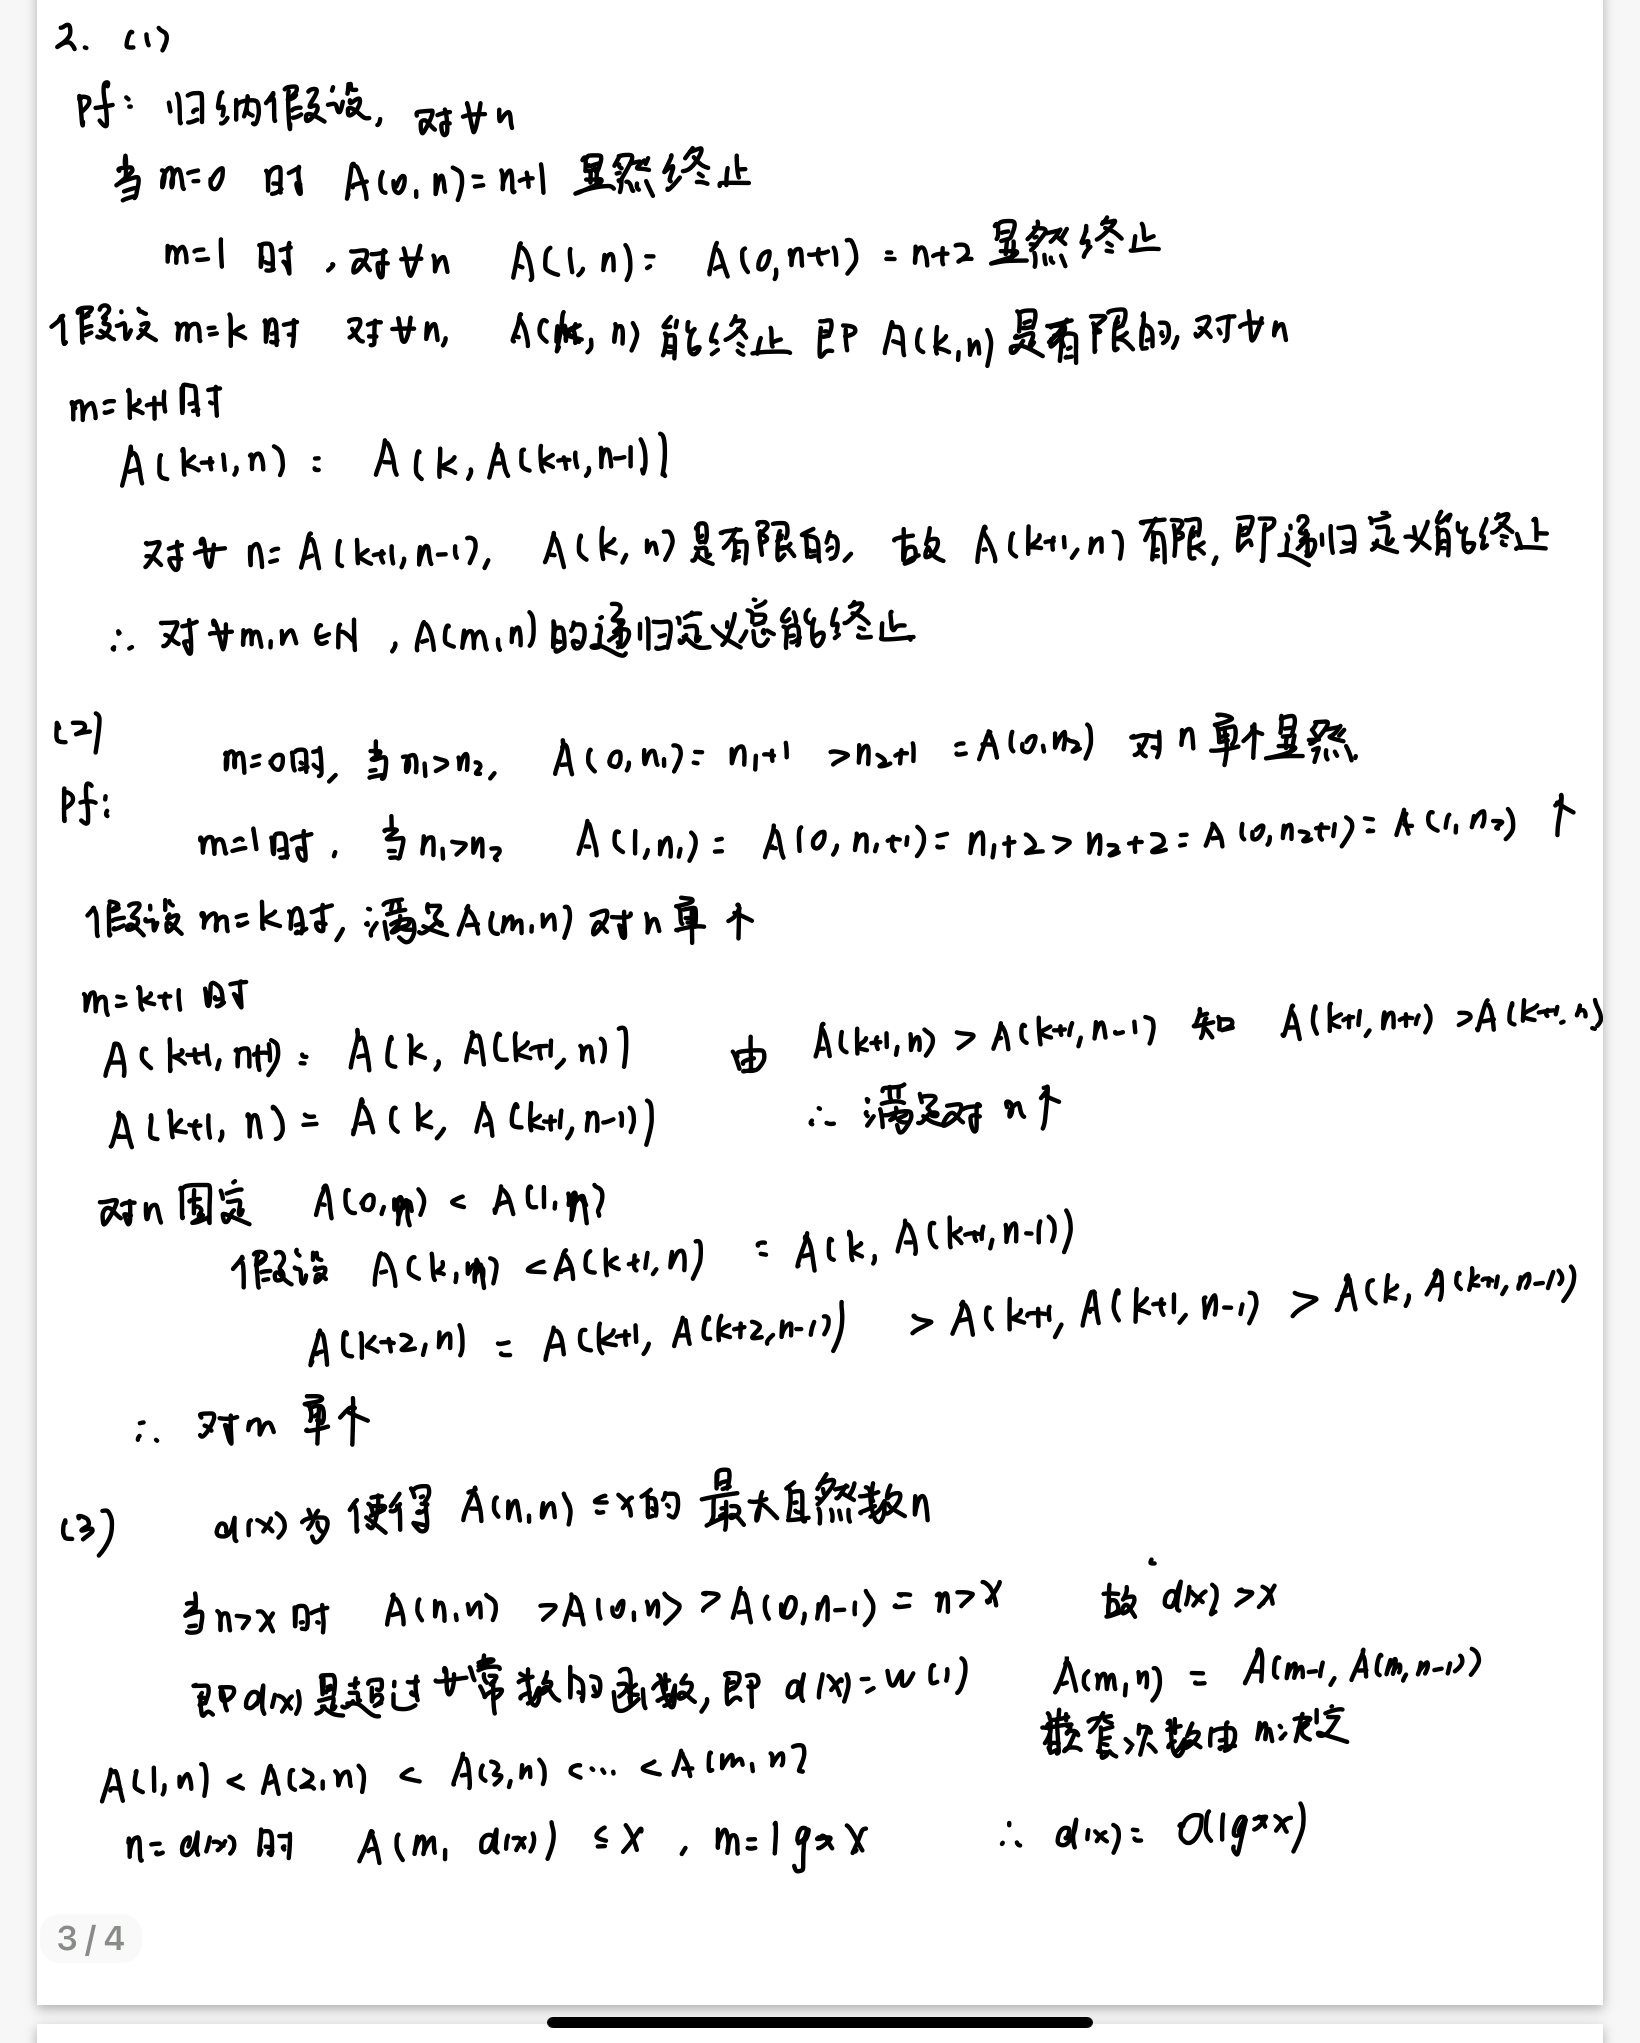 2. (1)
Pf: 归纳假设, 对∀n
当 m=0 时 A(0, n)=n+1 显然终止
m=1 时, 对∀n A(1, n)= A(0, n+1) = n+2 显然终止
假设 m=k 时 对∀n, A(k, n) 能终止 即 A(k, n) 是有限的, 对∀n
m=k+1时
A(k+1, n) = A(k, A(k+1, n-1))
对∀ n=A(k+1, n-1), A(k, n) 是有限的, 故 A(k+1, n) 有限, 即递归定义能终止
∴ 对∀m,n∈N, A(m,n) 的递归定义总能终止
(2)
m=0时, 当 n₁>n₂, A(0, n₁)= n₁+1 >n₂+1 =A(0, n₂) 对 n 单个显然.
Pf:
m=1时, 当 n₁>n₂ A(1, n₁)= A(0, n₁+1)= n₁+2 > n₂+2 = A(0, n₂+1)= A(1, n₂) ↑
假设 m=k时, 满足A(m,n) 对 n 单 个
m=k+1 时
A(k+1, n+1)= A(k, A(k+1, n)) 由 A(k+1, n) > A(k+1, n-1) 知 A(k+1, n+1) >A(k+1, n)
A(k+1, n) = A(k, A(k+1, n-1)) ∴ 满足对 n↑
对n 固定 A(0, n) < A(1, n)
假设 A(k, n) <A(k+1, n) = A(k, A(k+1, n-1))
A(k+2, n) = A(k+1, A(k+2, n-1)) > A(k+1, A(k+1, n-1) > A(k, A(k+1, n-1))
∴ 对m 单个
(3) α(x) 为 使得 A(n,n) ≤x的 最大自然数n
当n>x 时 A(n,n) >A(0,n) >A(0,n-1) = n>x 故 α(x) >x
即α(x) 是超过∀常数的函数, 即 α(x)=w(1) A(m,n) = A(m-1, A(m, n-1))
嵌套次数由 m决定
A(1,n) < A(2,n) < A(3,n) <... < A(m,n)
n=α(x) 时 A(m, α(x)) ≤ x, m=lg*x ∴ α(x)= O(lg*x)
3 / 4